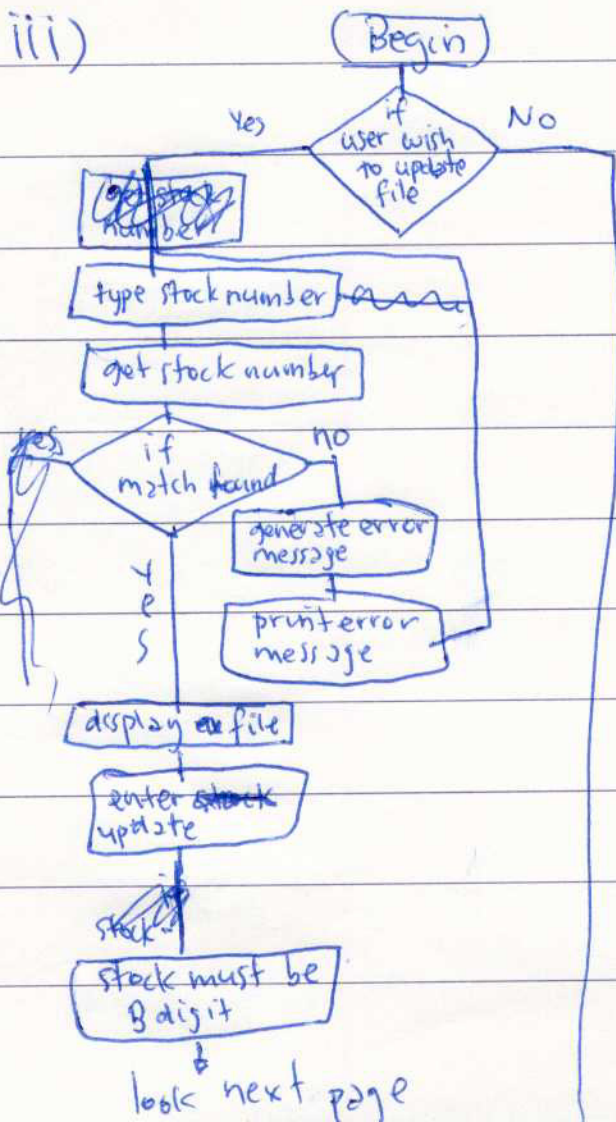 iii)
Begin
if
user wish
to update
file
Yes
No
get stock
number
type stock number
get stock number
if
match found
yes
no
generate error
message
print error
message
Yes
display file
enter stock
update
if
stock
stock must be
8 digit
look next page